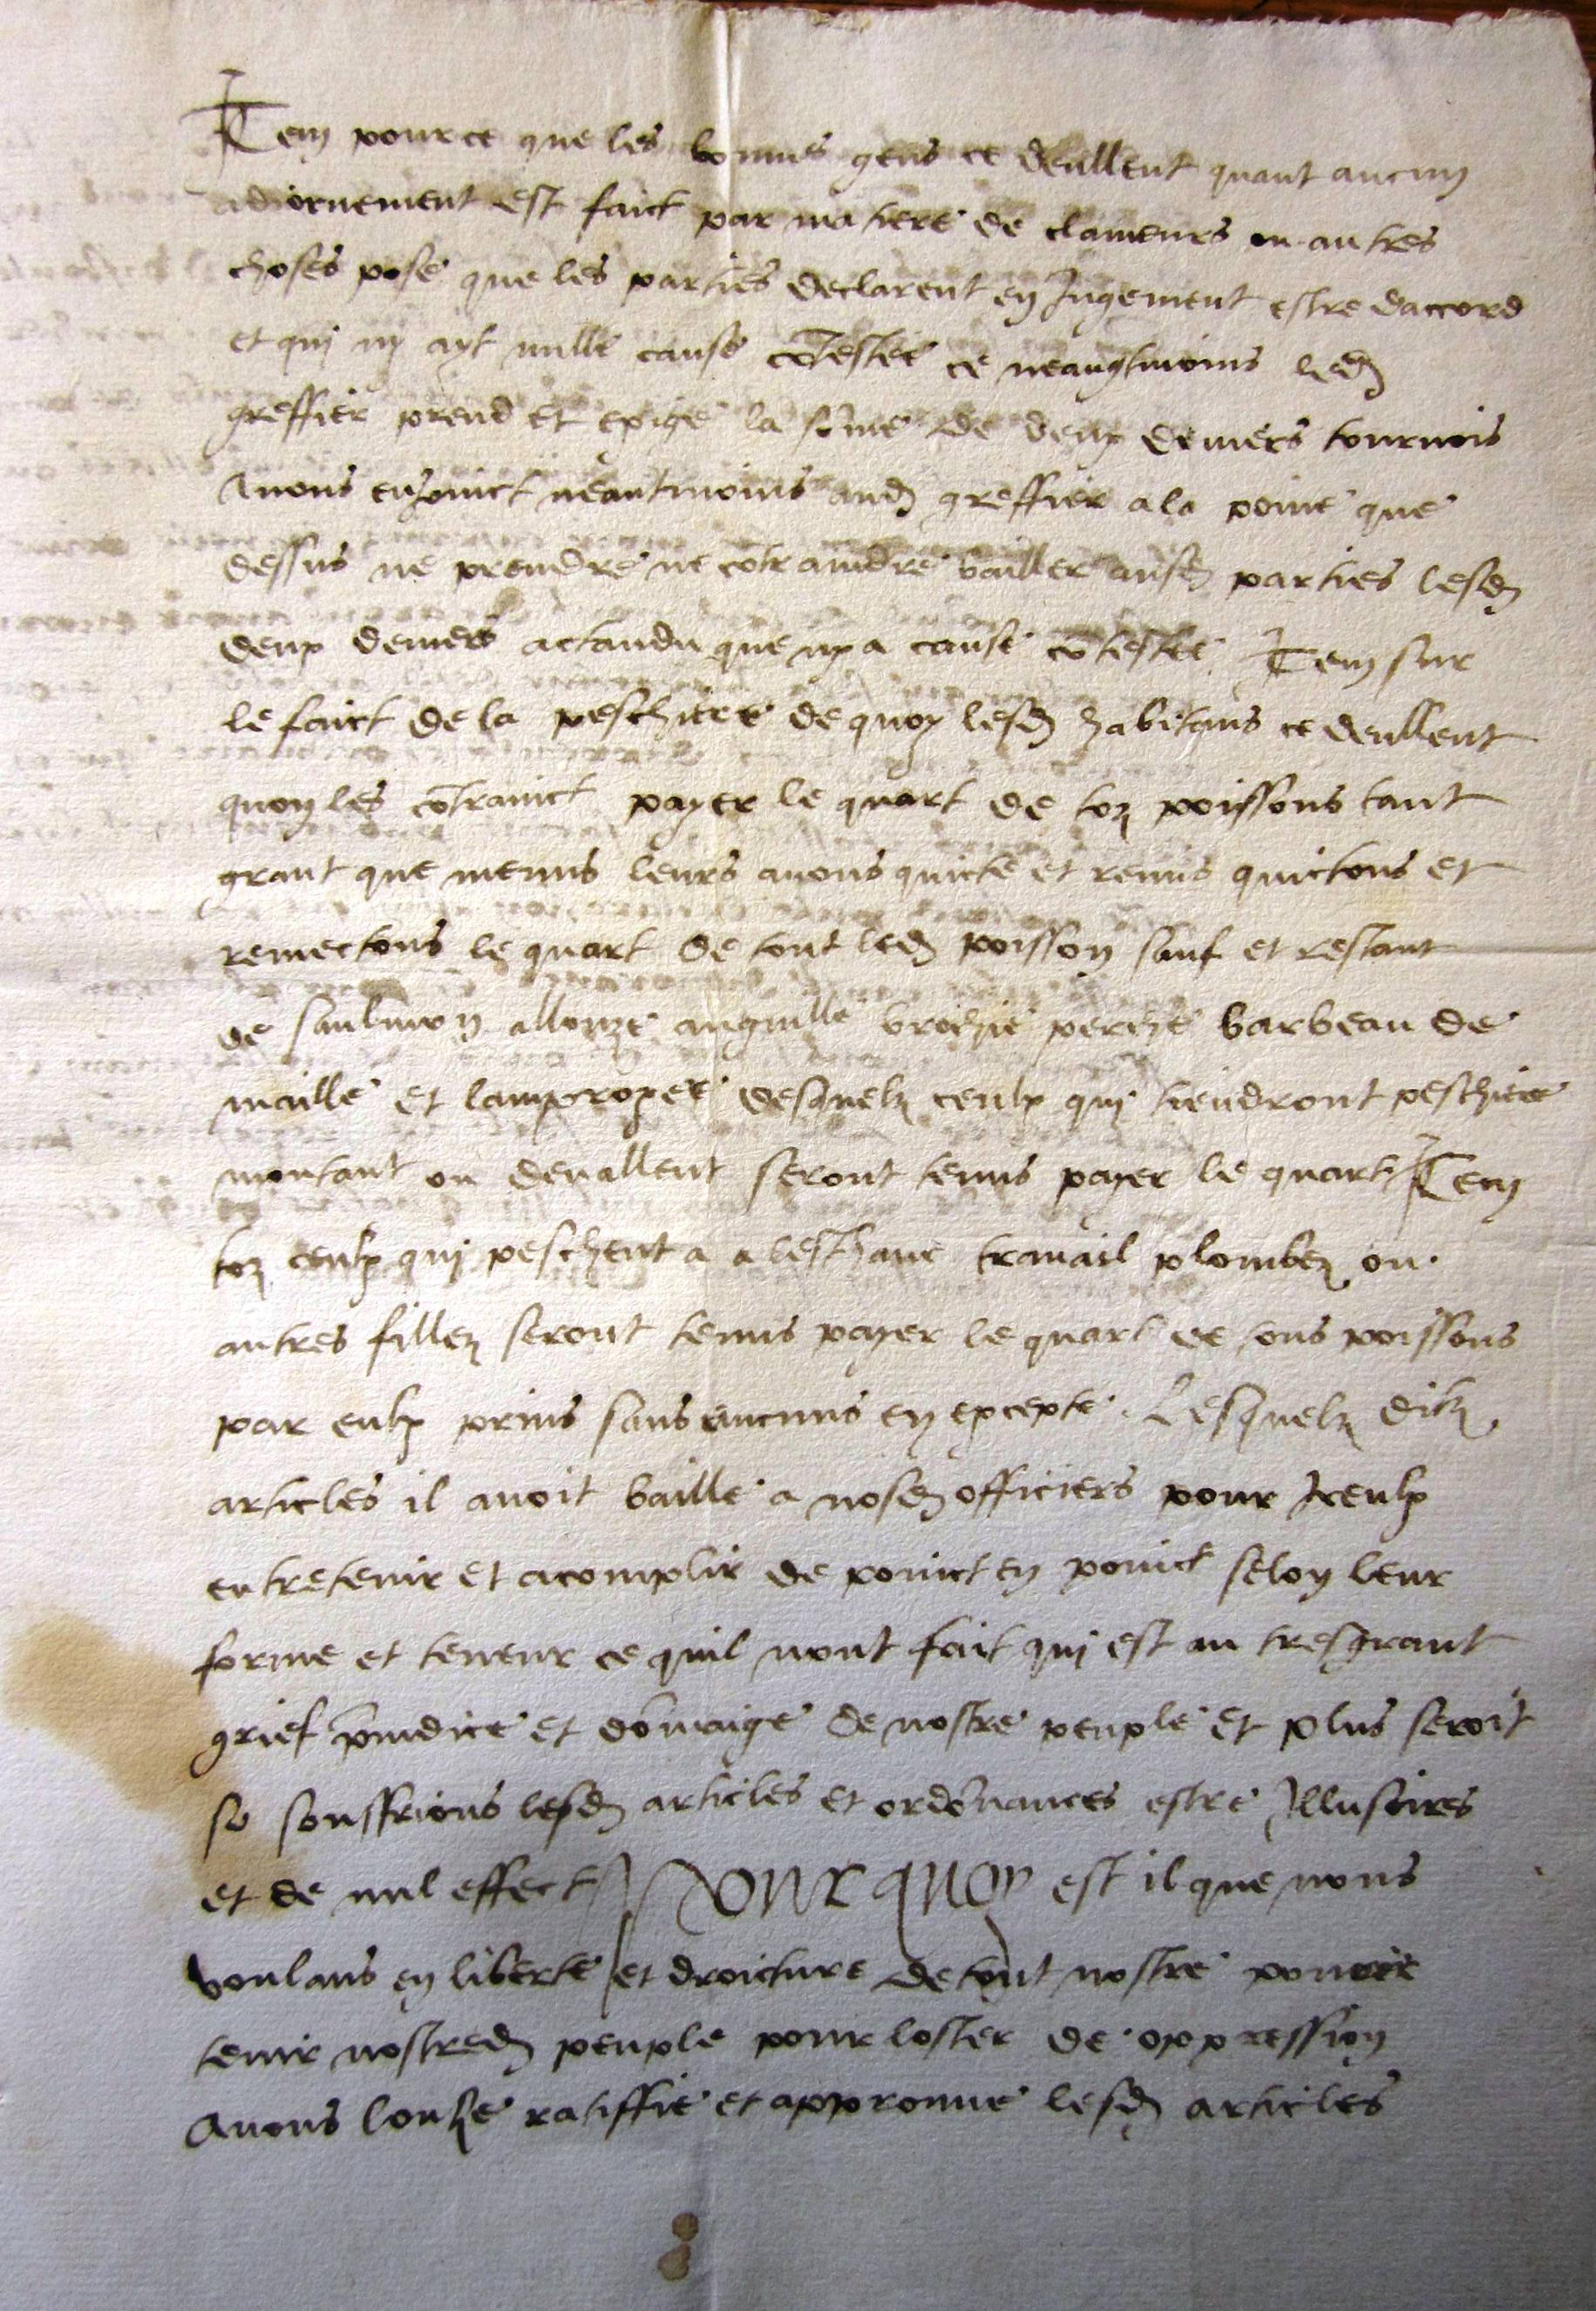 Item pource que les bonnes gens ce deullent quant aucun
adiornement est faict par matiere de clameurs ou autres
choses pose que les parties declarent en Jugement estre daccord
et qui ny ayt nulle cause cõtestee ce neaugtmoins led
greffier prend et exige la sõme de deux deniers tournois
Auons enjoinct neantmoins aud greffier a la peine que
dessus ne prendre ne cõtraindre bailler ausd parties lesd
deux deniers actandu que ny a cause cõtestee Item sur
le faict de la peschiere de quoy lesd habitans ce deullent
quon les cõtrainct payer le quart de toz poissons tant
grant que menus leurs auons quicte et remis quictons et
remectons le quart de tout led poisson sauf et restant
de saulmon allouze anguille brochie perche barbeau de
maille et lamproyee desquelz ceulx qui tiendront peschiere
montant ou deuallent seront tenus payer le quart Item
toz ceulx qui peschent a a lesthaue trauail plombez ou
autres fillez seront tenus payer le quart de tous poissons
par eulx prins sans aucuns en excepte. Lesquelz ditz
articles il auoit baille a nosd officiers pour Jceulx
entretenir et acomplir de poinct en poinct selon leur
forme et teneur ce quil nont fait qui est au tresgrant
grief p̃iudice et dõmaige de nostre peuple et plus seroit
se souffrions lesd articles et ordõnances estre Jllusoires
et de nul effect Pour quoy est il que nous
voulans en liberte et droicture de tout nostre pouoir
tenir nostred peuple pour loster de oppression
Auons louhe ratiffie et approuue lesd articles